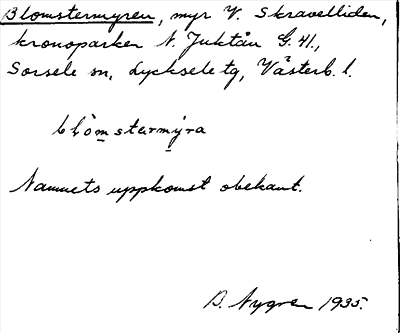 Blomstermyren, myr V. Skravelliden,
kronoparken N. Juktån G. 41.,
Sorsele sn, Lycksele tg, Västerb. l.
blòmstermỳra
Namnets uppkomst obekant.
B. Nygren 1935.